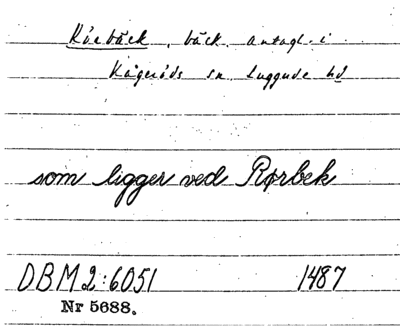 Rörbäck, bäck, antagl. i
Kågeröds sn Luggude hd
som ligger ved Rørbek
DBM 2:6051 1487
Nr 5688.